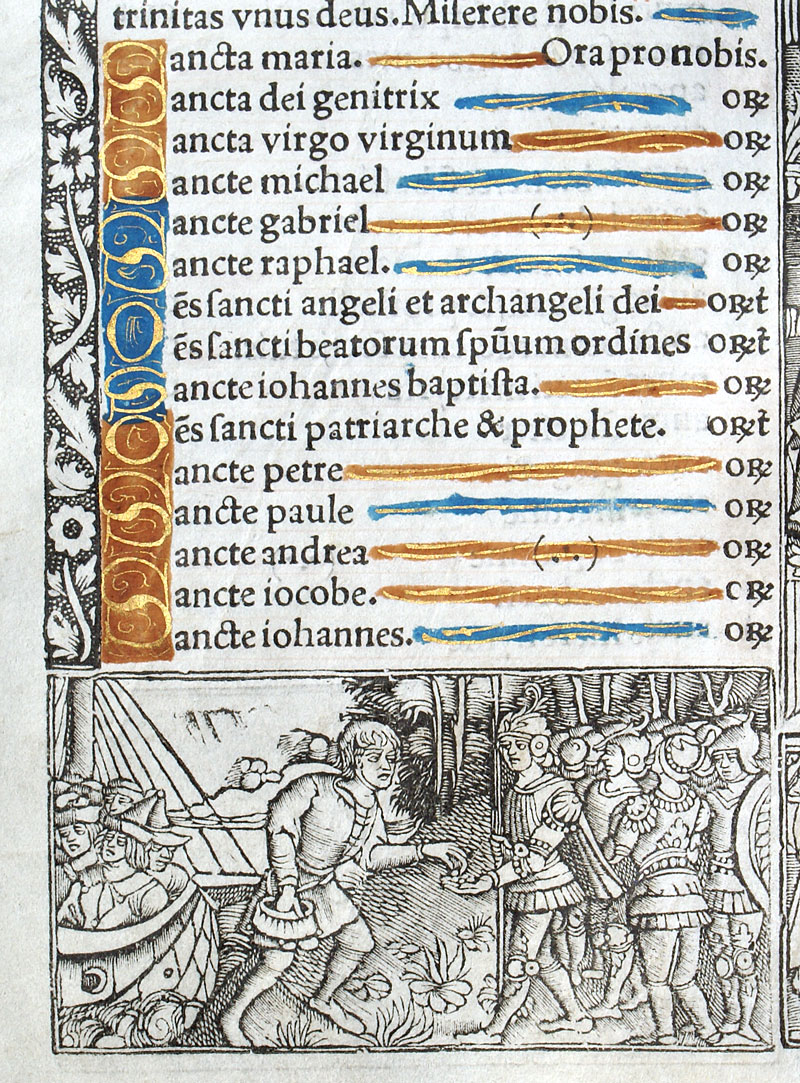 trinitas vnus deus. Miſerere nobis.
Sancta maria. Ora pro nobis.
Sancta dei genitrix oꝶ
Sancta virgo virginum oꝶ
Sancte michael oꝶ
Sancte gabriel oꝶ
Sancte raphael. oꝶ
Oēs ſancti angeli et archangeli dei oꝶt
Oēs ſancti beatorum ſpūum ordines oꝶt
Sancte iohannes baptiſta. oꝶ
Oēs ſancti patriarche & prophete. oꝶt
Sancte petre oꝶ
Sancte paule oꝶ
Sancte andrea oꝶ
Sancte iocobe. oꝶ
Sancte iohannes. oꝶ